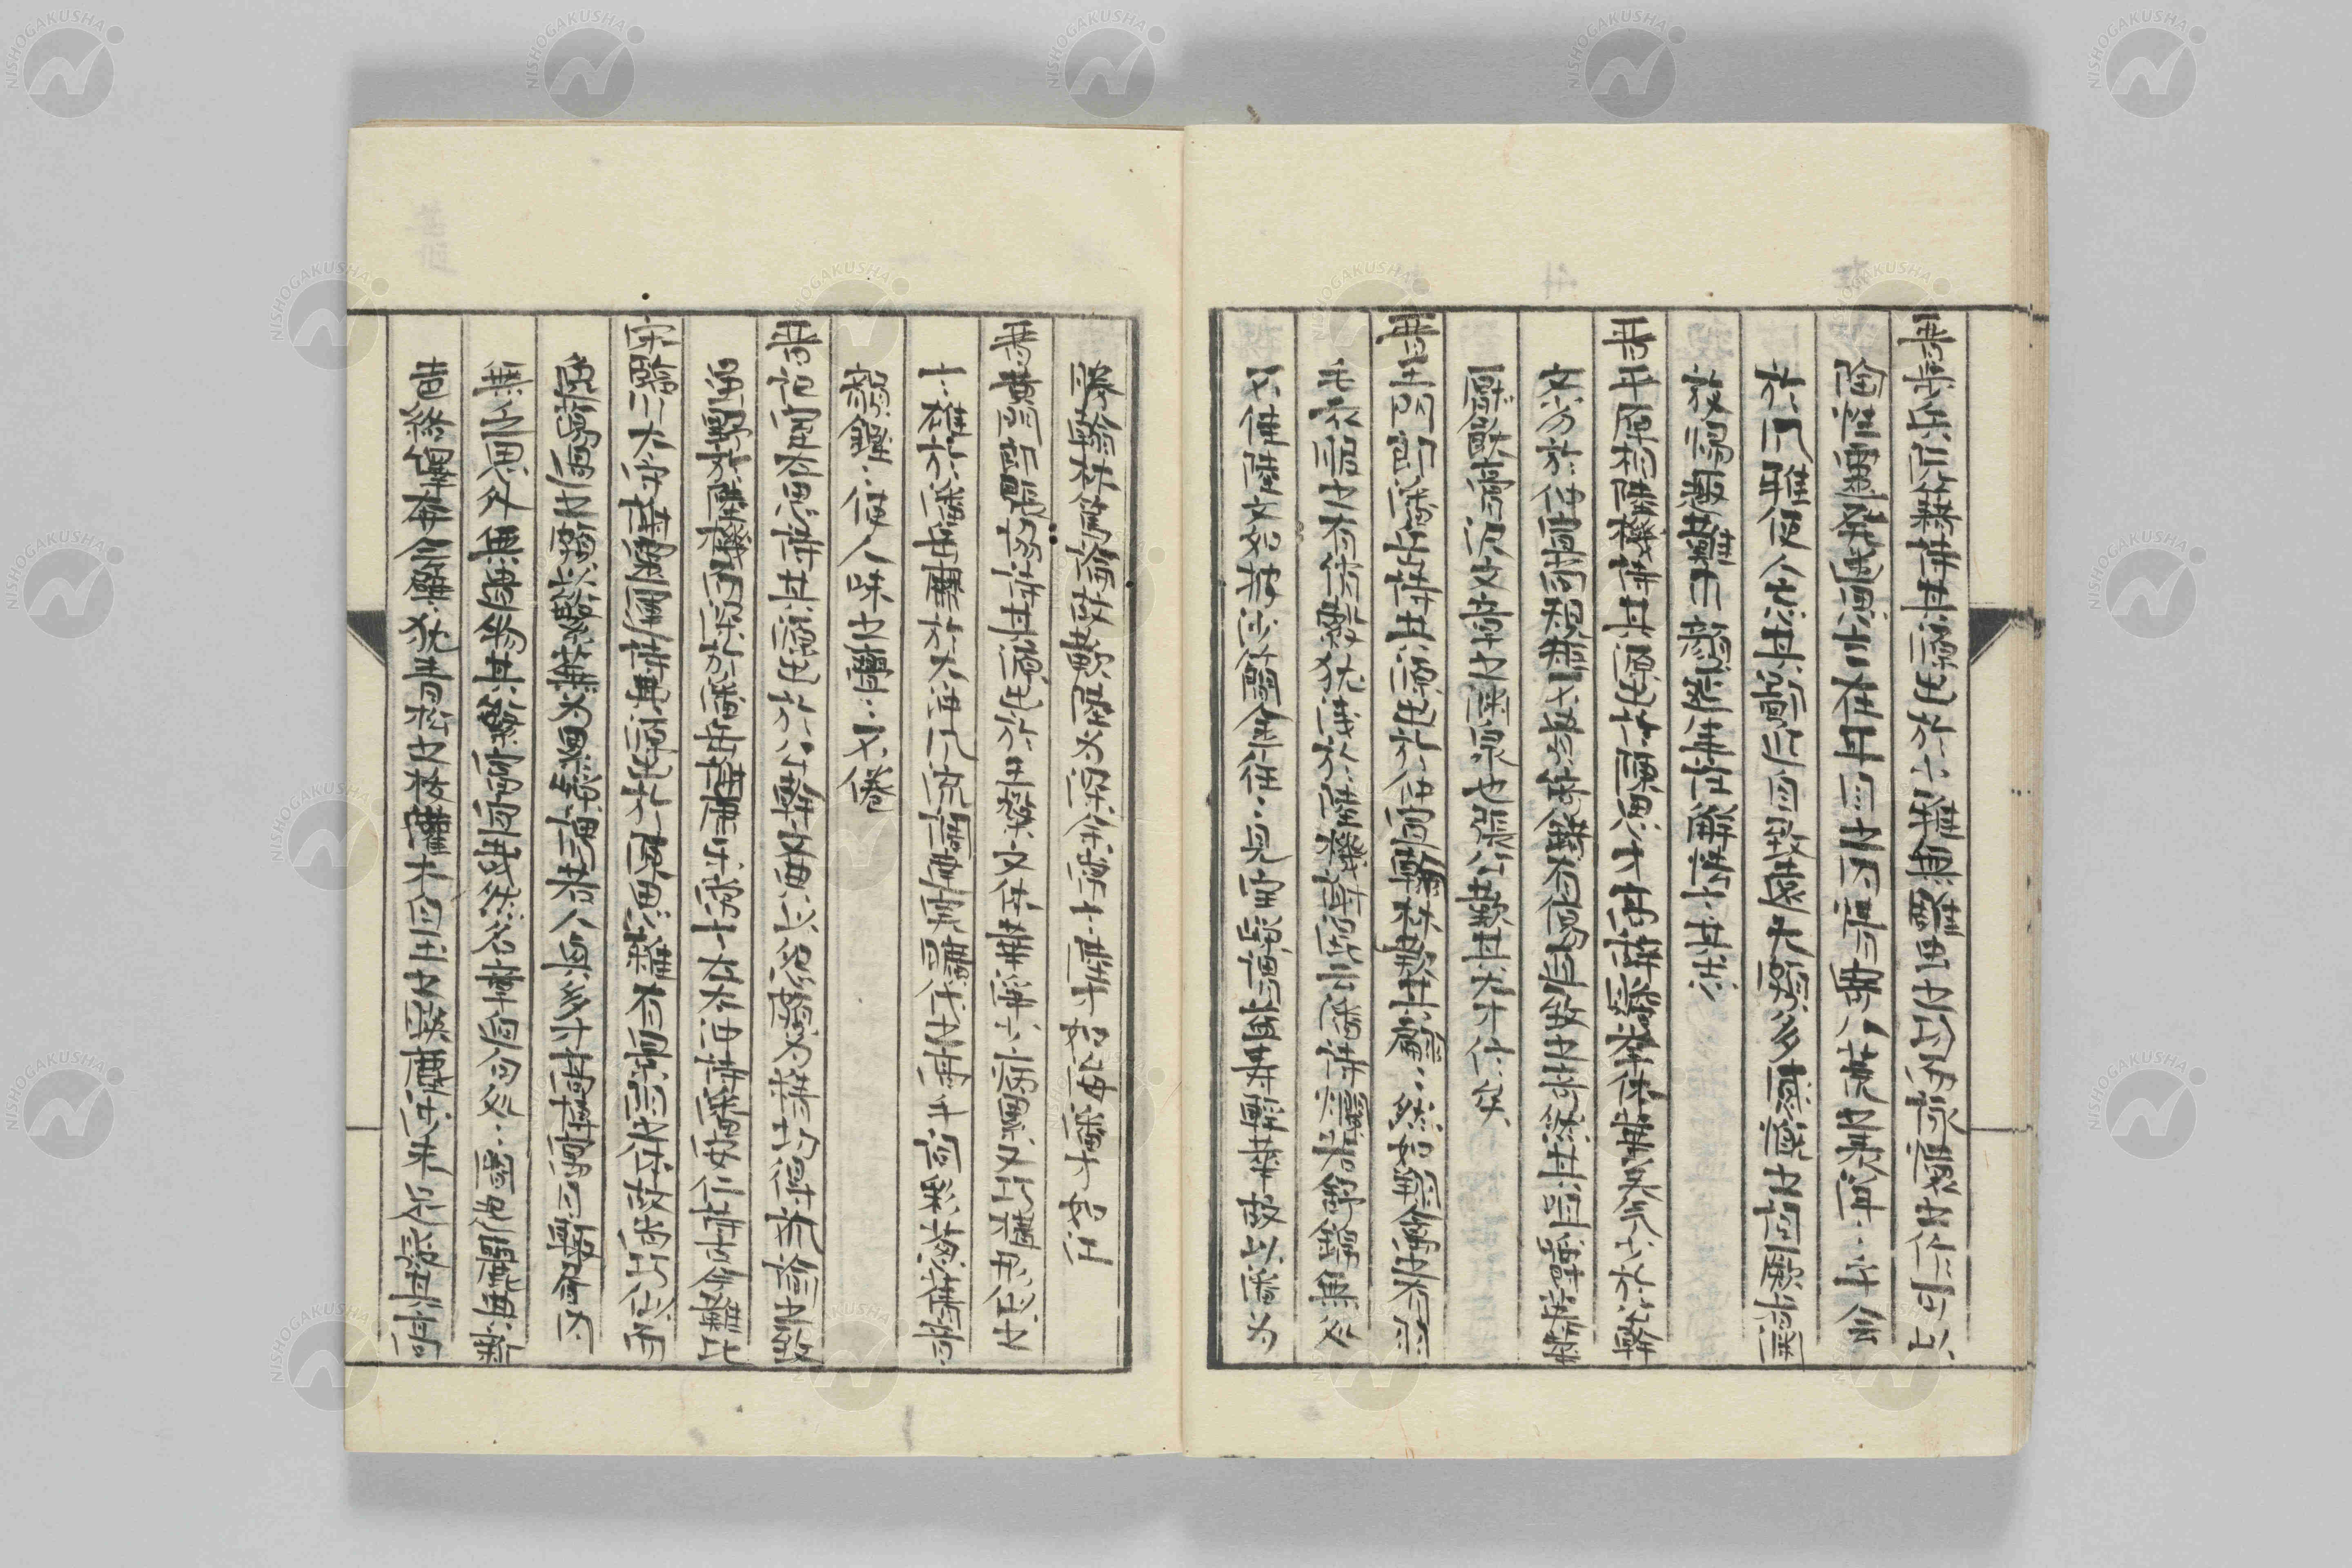 晉步兵阮籍詩其源出於小雅無雕蟲之巧而詠懷之作可以
陶性靈發幽思言在耳目之內情寄八荒之表洋〻乎會
於風雅使人忘其鄙近自致遠大頗多感慨之詞厥旨淵
放歸趣難求顏延註解怯言其志
晉平原相陸機詩其源出於陳思才高詞贍舉體華美氣少於公幹
文劣於仲宣尚規矩不貴綺錯有傷直致之奇然其咀嚼英華
厭飫膏澤文章之淵泉也張公歎其大才信矣
晉黃門郎潘岳詩其源出於仲宣翰林歎其翩〻然如翔禽之有羽
毛衣服之有綃縠猶淺於陸機謝混云潘詩爛若舒錦無處
不佳陸文如披沙簡金往〻見寶嶸謂益壽輕華故以潘為
勝翰林篤論故歎陸為深余常言陸才如海潘才如江
晉黃門郎張協詩其源出於王粲文體華淨少病累又巧構形似之
言雄於潘岳靡於太沖風流調達實曠代之高手詞彩蔥蒨音
韻鏗〻使人味之亹〻不倦
晉記室左思詩其源出於公幹文典以怨頗為精切得諷諭之致
雖野於陸機而深於潘岳謝康樂常言左太沖詩潘安仁詩古今難比
宋臨川太守謝靈運詩其源出於陳思雜有景陽之體故尚巧似而
逸蕩過之頗以繁蕪為累嶸謂若人興多才高博寓目輒書內
無乏思外無遺物其繁富宜哉然名章迥句處〻間起麗典新
聲絡繹奔會譬猶青松之拔灌木白玉之映塵沙未足貶其高